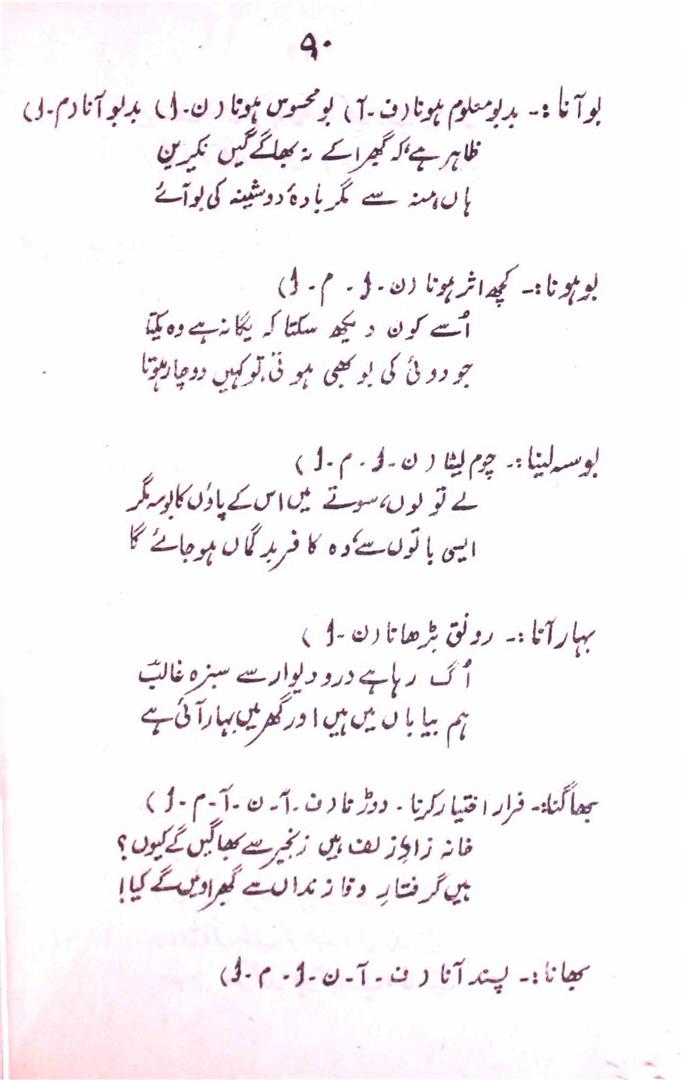 ۹۰
بو آنا :۔ بدبو معلوم ہونا (ف۔آ) بو محسوس ہونا (ن۔ا) بدبو آنا (م۔ا)
ظاہر ہے، کہ گھبرا کے نہ بھاگیں گے نکیرین
ہاں، منہ سے مگر بادۂ دوشینہ کی بو آئے
بو ہونا :۔ کچھ اثر ہونا (ن۔ا۔ م۔ا)
اُسے کون دیکھ سکتا کہ یگانہ ہے وہ یکتا
جو دوئی کی بو بھی ہوتی، تو کہیں دوچار ہوتا
بوسہ لینا :۔ چوم لینا (ن۔ا۔ م۔ا)
لے تو لوں، سوتے میں اس کے پاؤں کا بوسہ، مگر
ایسی باتوں سے، وہ کافر بدگماں ہو جائے گا
بہار آنا :۔ رونق بڑھانا (ن۔ا)
اُگ رہا ہے در و دیوار سے سبزہ غالبؔ
ہم بیاباں میں ہیں اور گھر میں بہار آئی ہے
بھاگنا :۔ فرار اختیار کرنا ۔ دوڑنا (ف۔آ۔ن۔آ۔م۔ا)
خانہ زادِ زلف ہیں زنجیر سے بھاگیں گے کیوں؟
ہیں گرفتارِ وفا زنداں سے گھبراویں گے کیا!
بھانا :۔ پسند آنا (ف۔آ۔ن۔ا۔م۔ا)